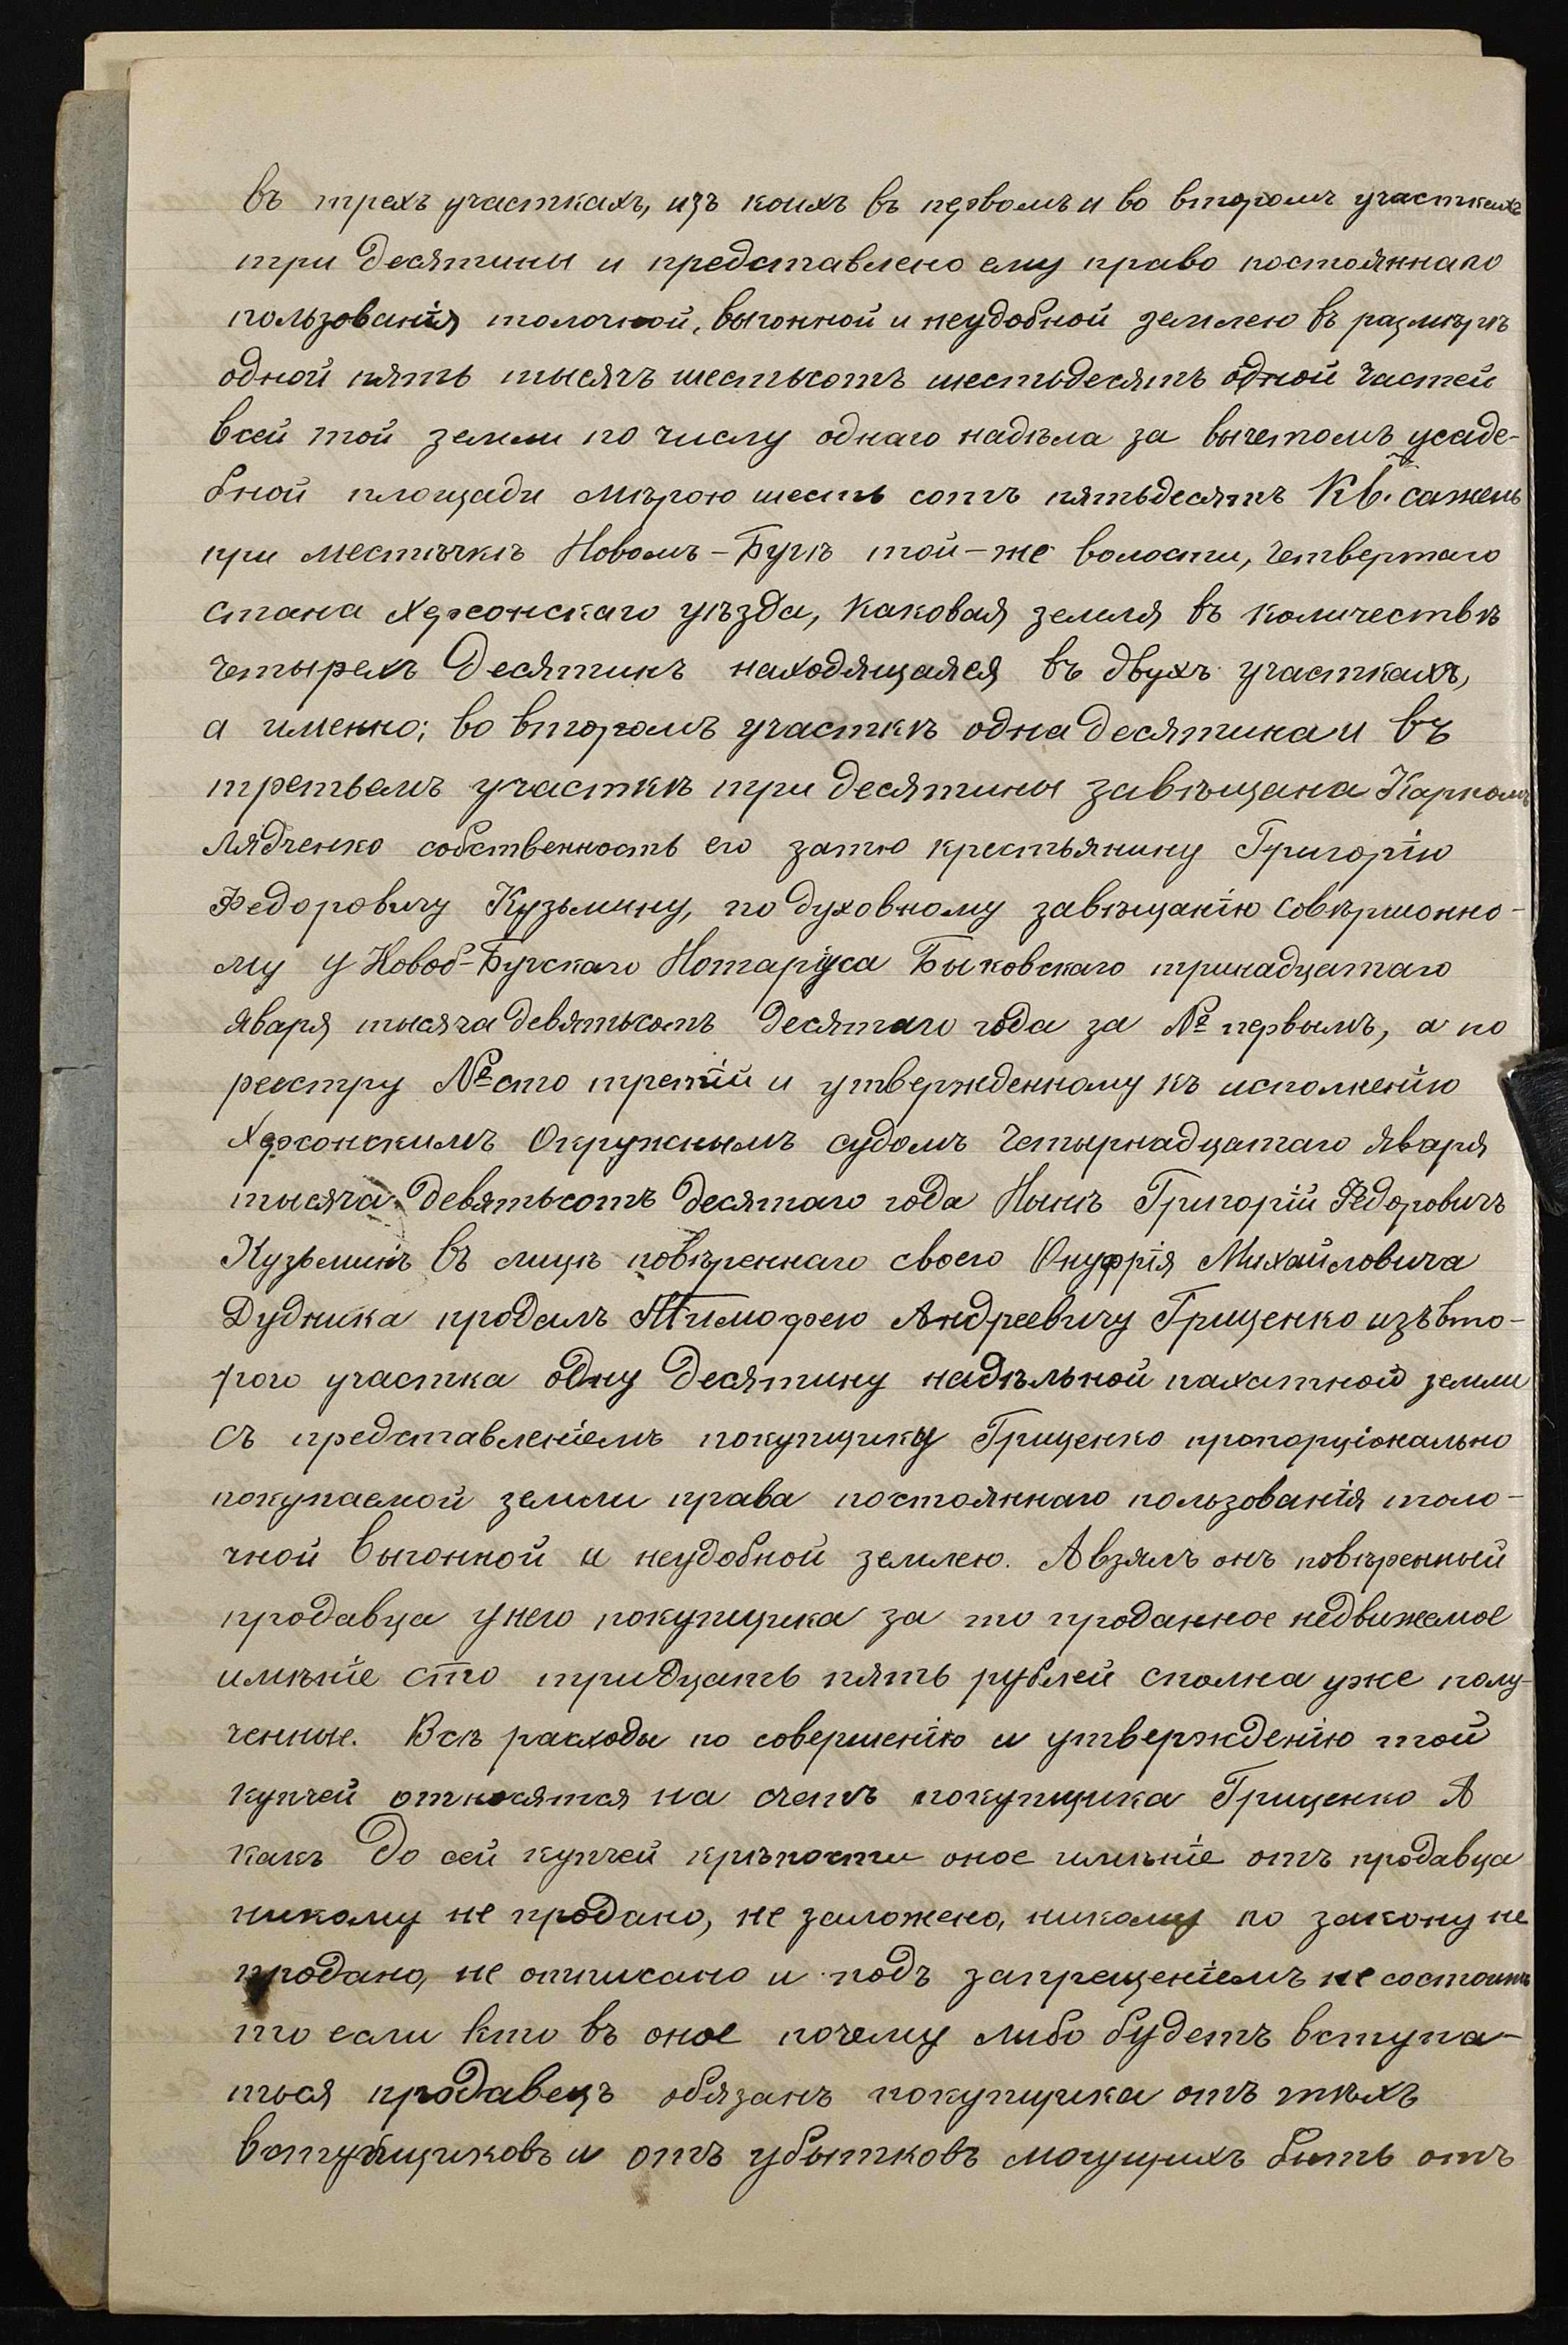 въ трехъ участкахъ, изъ коихъ въ первомъ и во второмъ участкахъ
три десятины и представлено ему право постояннаго
пользованія толочной, выгонной и неудобной землею въ размѣрѣ
одной пять тысячъ шестьсотъ шестьдесятъ одной частей
всей той земли по числу однаго надѣла за вычетомъ усаде-
бной площади мѣрою шесть сотъ пятьдесятъ Кв. сажень
при местѣчкѣ Новомъ-Бугѣ той-же волости, четвертаго
стана Херсонскаго уѣзда, каковая земля въ количествѣ
четырехъ десятинъ находящаяся въ двухъ участкахъ,
а именно; во второмъ участкѣ одна десятина и въ
третьемъ участкѣ три десятины завѣщана Карпомъ
Лядченко собственность его затю крестьянину Григорію
Федоровичу Кузьмину, по духовному завѣщанію совѣршонно-
му у Новоб-Бугскаго Нотаріуса Быковскаго тринадцатаго
Яваря тысяча девятьсотъ десятаго года за № первымъ, а по
реестру № сто третій и утвержденному къ исполненію
Херсонскимъ Окружнымъ судомъ четырнадцатаго Яваря
тысяча девятьсотъ десятаго года Нынѣ Григорій Федоровичъ
Кузьминъ въ лицѣ повѣреннаго своего Онуфрія Михайловича
Дудника продалъ Тимофею Андреевичу Грищенко изъ вто-
рого участка одну десятину надѣльной пахатной земли
съ представленіемъ покупщику Грищенко пропорціонально
покупаемой земли права постояннаго пользованія толо-
чной выгонной и неудобной землею. А взялъ онъ повѣренный
продавца у него покупщика за то проданное недвижемое
имѣніе сто тридцать пять рублей сполна уже полу-
ченные. Всѣ расходы по совершенію и утвержденію той
купчей относятся на счетъ покупщика Грищенко А
какъ до сей купчей крѣпости оное имѣніе отъ продавца
никому не продано, не заложено, никому по закону не
продано, не отписано и подъ запрещеніемъ не состоитъ
то если кто въ оное почему либо будетъ вступа-
ться продавецъ обязанъ покупщика отъ тѣхъ
вступщиковъ и отъ убытковъ могущихъ быть отъ